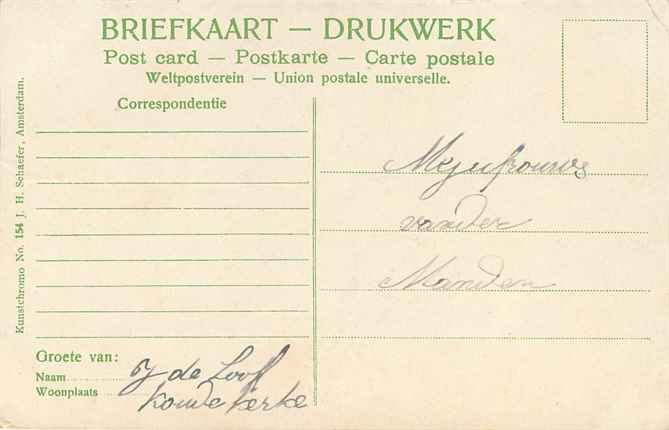 BRIEFKAART — DRUKWERK
Post card — Postkarte — Carte postale
Weltpostverein — Union postale universelle.
Correspondentie
Kunstchromo No. 154 J. H. Schaefer, Amsterdam.
Mejufrouw
vander
Manden
Groete van:
Naam J de Looff
Woonplaats Koudekerke